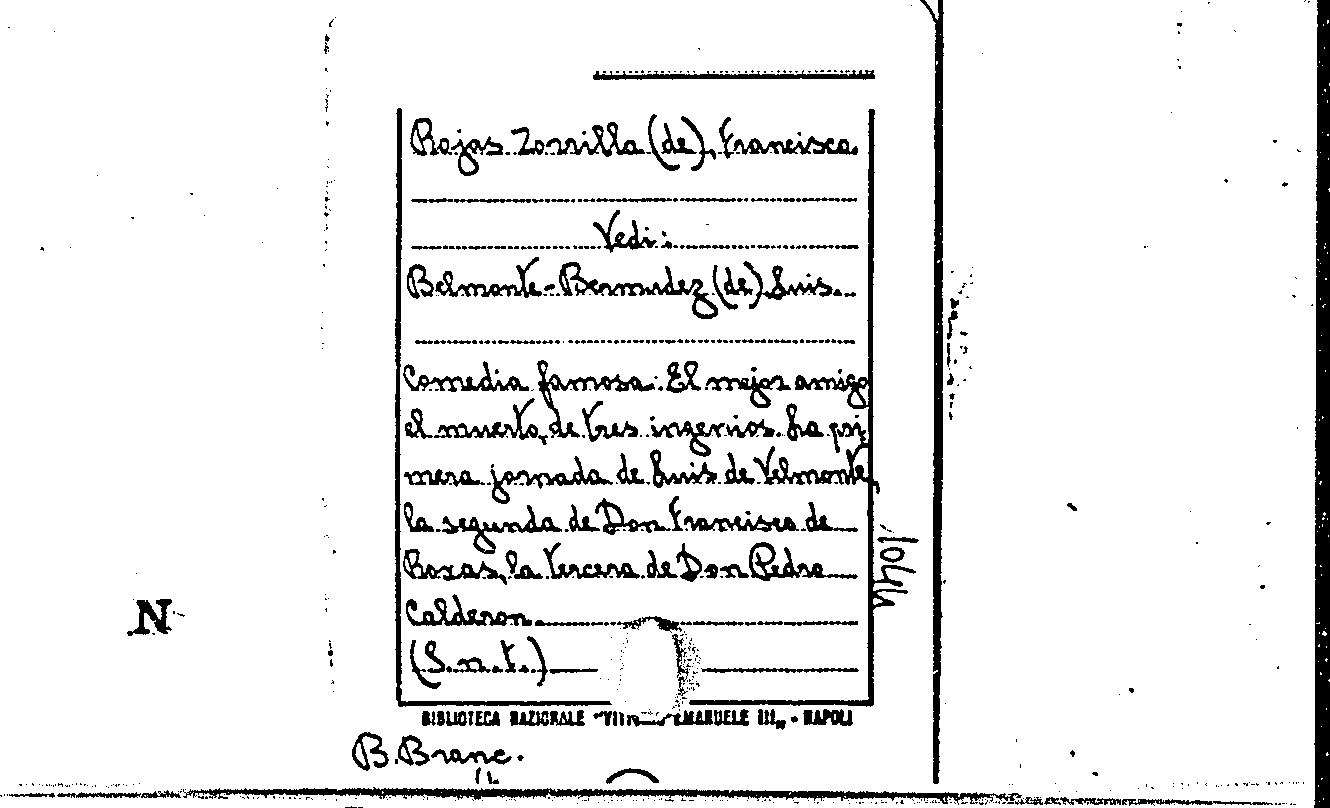 Rojas Zorrilla (de), Francisco.
Vedi:
Belmonte-Bermudez (de) Luis.
Comedia famosa: El mejor amigo
el muerto, de tres ingenios. La pri-
mera jornada de Luis de Velmonte,
la segunda de Don Francisco de
Roxas, la tercera de Don Pedro
Calderon.
(S.n.t.)
1044
N
BIBLIOTECA NAZIONALE "VITTORIO EMANUELE III„ - NAPOLI
B. Branc.